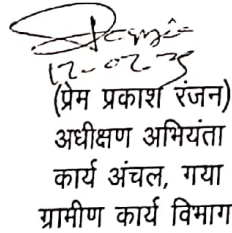 12-02-25
(प्रेम प्रकाश रंजन)
अधीक्षण अभियंता
कार्य अंचल, गया
ग्रामीण कार्य विभाग